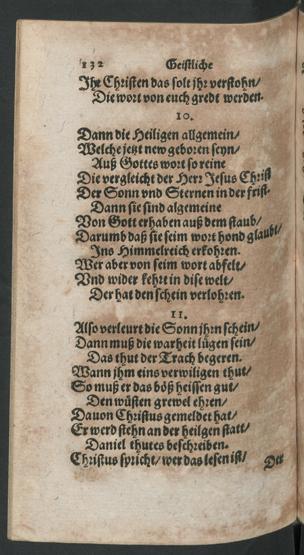 132 Geistliche
Ihr Christen das solt jhr verstohn/
Die wort von euch gredt werden.
10.
Dann die Heiligen allgemein/
Welche jetzt new geboren seyn/
Auß Gottes wort so reine
Die vergleicht der Herr Jesus Christ
Der Sonn vnd Sternen in der frist.
Dann sie sind algemeine
Von Gott erhaben auß dem staub/
Darumb daß sie seim wort hond glaubt/
Ins Himmelreich erkohren.
Wer aber von seim wort abfelt/
Vnd wider kehrt in dise welt/
Der hat den schein verlohren.
11.
Also verleurt die Sonn jhrn schein/
Dann muß die warheit lügen sein/
Das thut der Trach begeren.
Wann jhm eins verwiligen thut/
So muß er das böß heissen gut/
Den wüsten grewel ehren/
Dauon Christus gemeldet hat/
Er werd stehn an der heilgen statt/
Daniel thut es beschreiben.
Christus spricht/ wer das lesen ist/
Der